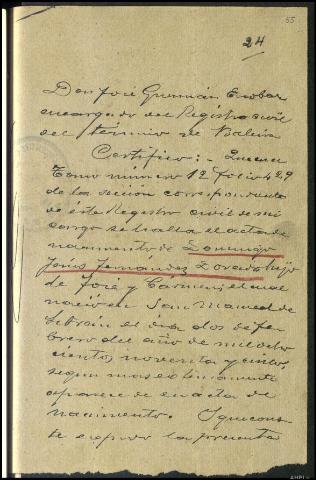 55
24
Don José Guzmán Escobar
encargado del Registro civil
del término de Baleira
Certifico: - Que en el
Tomo número 12 folio 429
de la sección correspondiente
de éste Registro civil de mi
cargo se halla el acta de
nacimiento de Domingo
Jesús Fernández Lorado hijo
de Jose y Carmen; el cual
nació en San Mamed de
el dia dos de fe
brero del año de mil ocho
cientos noventa y cinco,
segun mas extensamente
aparece de en acta de
nacimiento. Y que cons-
te expido la presente